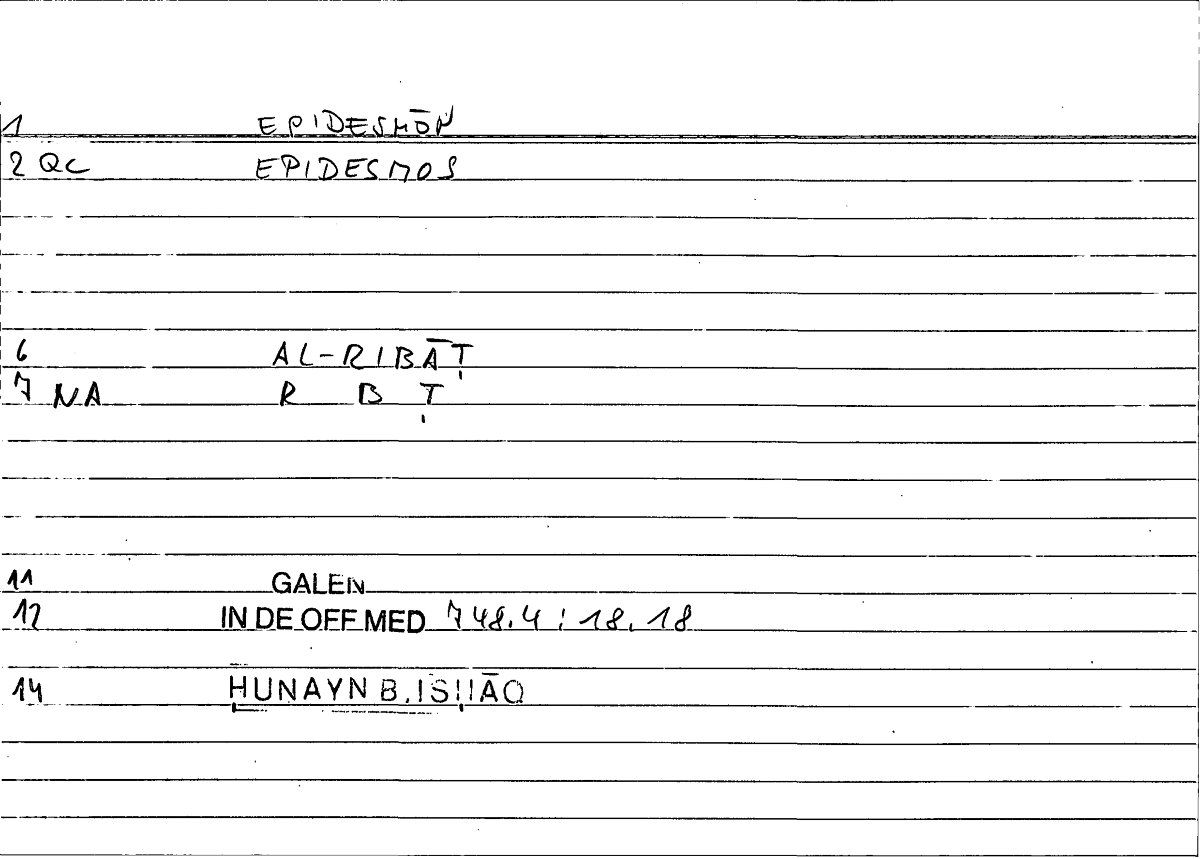 1 EPIDESMŌN
2 QC EPIDESMOS
6 AL-RIBĀṬ
7 NA R B Ṭ
11 GALEN
12 IN DE OFF MED 748.4 : 18.18
14 ḤUNAYN B. ISḤĀQ